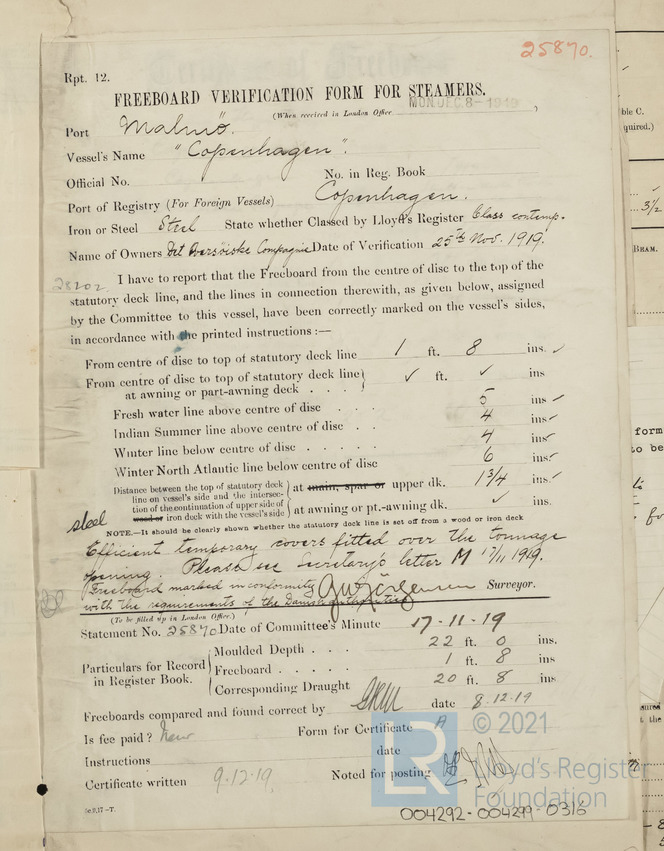 25870.
Rpt. 12.
FREEBOARD VERIFICATION FORM FOR STEAMERS.
MON. DEC. 8 - 1919
(When received in London Office
Port Malmö.
Vessel's Name "Copenhagen".
Official No. No. in Reg. Book
Port of Registry (For Foreign Vessels) Copenhagen.
Iron or Steel Steel State whether Classed by Lloyd's Register Class contemp.
Name of Owners Det Compagnie Date of Verification 25th Nov. 1919.
28202
I have to report that the Freeboard from the centre of disc to the top of the
statutory deck line, and the lines in connection therewith, as given below, assigned
by the Committee to this vessel, have been correctly marked on the vessel's sides,
in accordance with the printed instructions :—
From centre of disc to top of statutory deck line 1 ft. 8 ins. ✓
From centre of disc to top of statutory deck line ✓ ft. ✓ ins
at awning or part-awning deck . . .
Fresh water line above centre of disc . . . 5 ins ✓
Indian Summer line above centre of disc . . 4 ins ✓
Winter line below centre of disc . . . . . 4 ins ✓
Winter North Atlantic line below centre of disc 6 ins ✓
Distance between the top of statutory deck
line on vessel's side and the intersec-
tion of the continuation of upper side of
steel wood or iron deck with the vessel's side
at main, spar or upper dk. 1 3/4 ins. ✓
at awning or pt.-awning dk. ✓ ins.
NOTE.—It should be clearly shown whether the statutory deck line is set off from a wood or iron deck
Efficient temporary covers fitted over the tonnage
opening. Please see Secretary's letter M 17/11 1919.
Freeboard marked in conformity
with the requirements of the Danish authorities
Surveyor.
(To be filled up in London Office.)
Statement No. 25870 Date of Committee's Minute 17-11-19
Particulars for Record
in Register Book.
Moulded Depth . . . 22 ft. 0 ins.
Freeboard . . . . . 1 ft. 8 ins
Corresponding Draught 20 ft. 8 ins.
Freeboards compared and found correct by date 8-12-19
Is fee paid ? New Form for Certificate A
date
Instructions
Certificate written 9.12.19 Noted for posting
Sc.9,17 -T.
LR © 2021
Lloyd's Register
Foundation
004292-004299-0316
ble C.
quired.)
3 1/2
BEAM.
form
to be